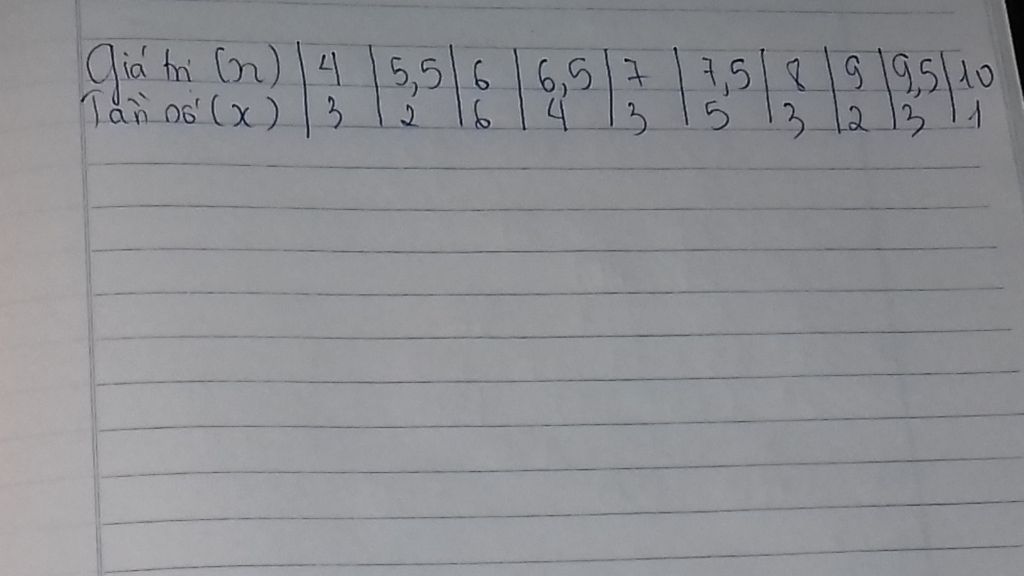 Giá trị (n) | 4 | 5,5 | 6 | 6,5 | 7 | 7,5 | 8 | 9 | 9,5 | 10
Tần số (x) | 3 | 2 | 6 | 4 | 3 | 5 | 3 | 2 | 3 | 1